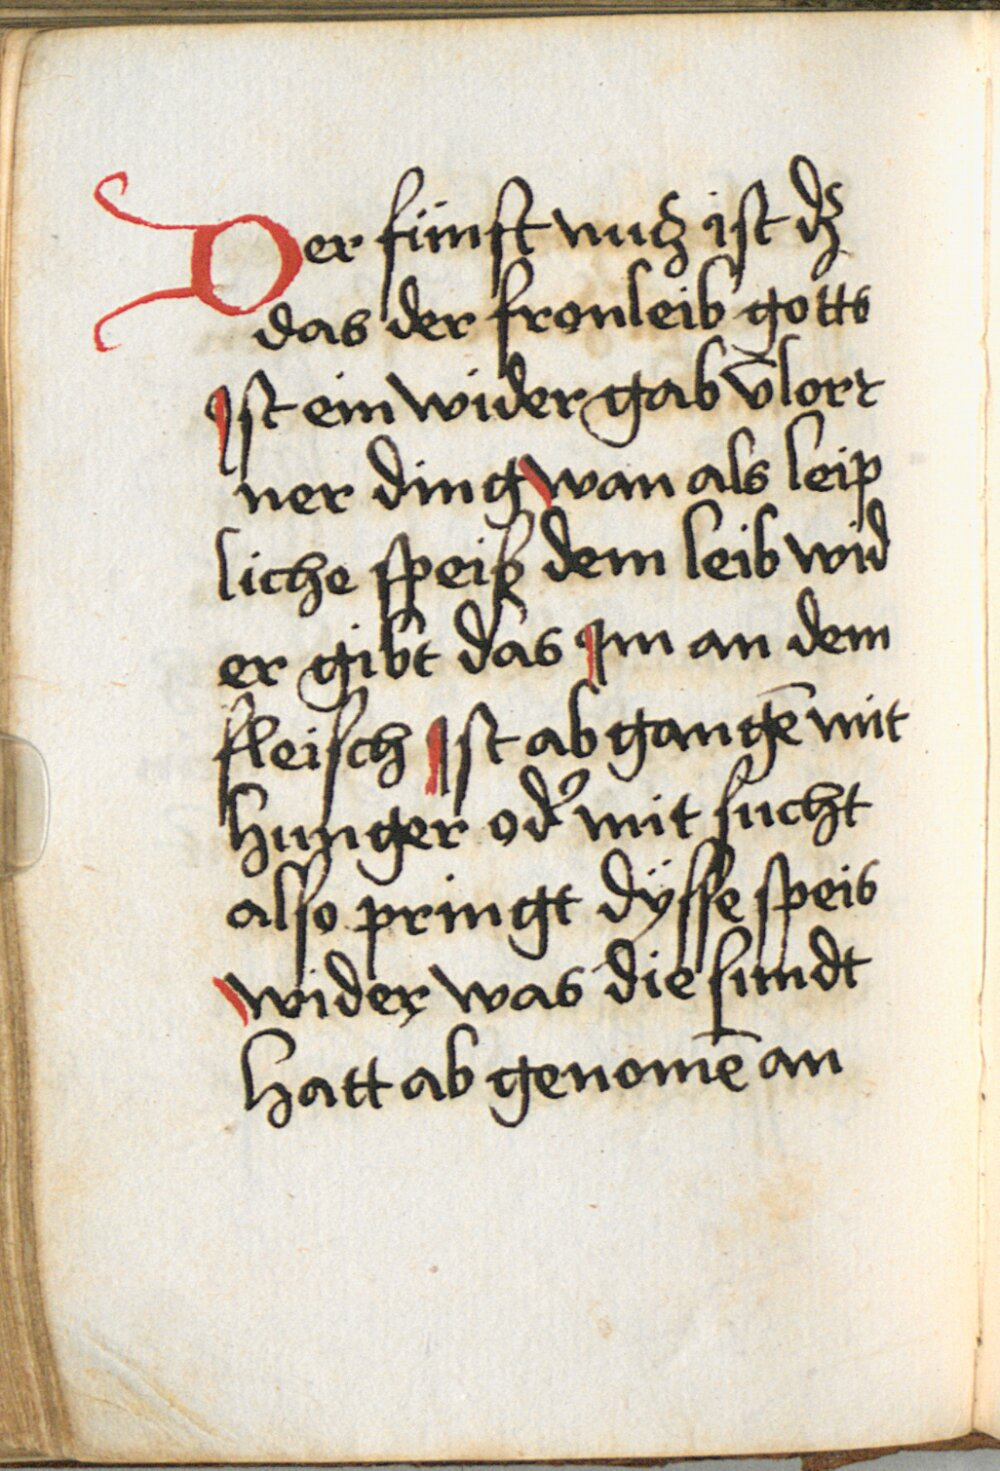 Der fünfft nutz ist dz
das der fronleib gotts
Ist ein wider gab v̄lorr
ner ding wan als leip
liche speiß dem leib wid
er gibt das Im an dem
fleisch Ist ab gangē mit
hunger od' mit sucht
also pringt dÿsse speis
wider was die sundt
hatt ab genomē an